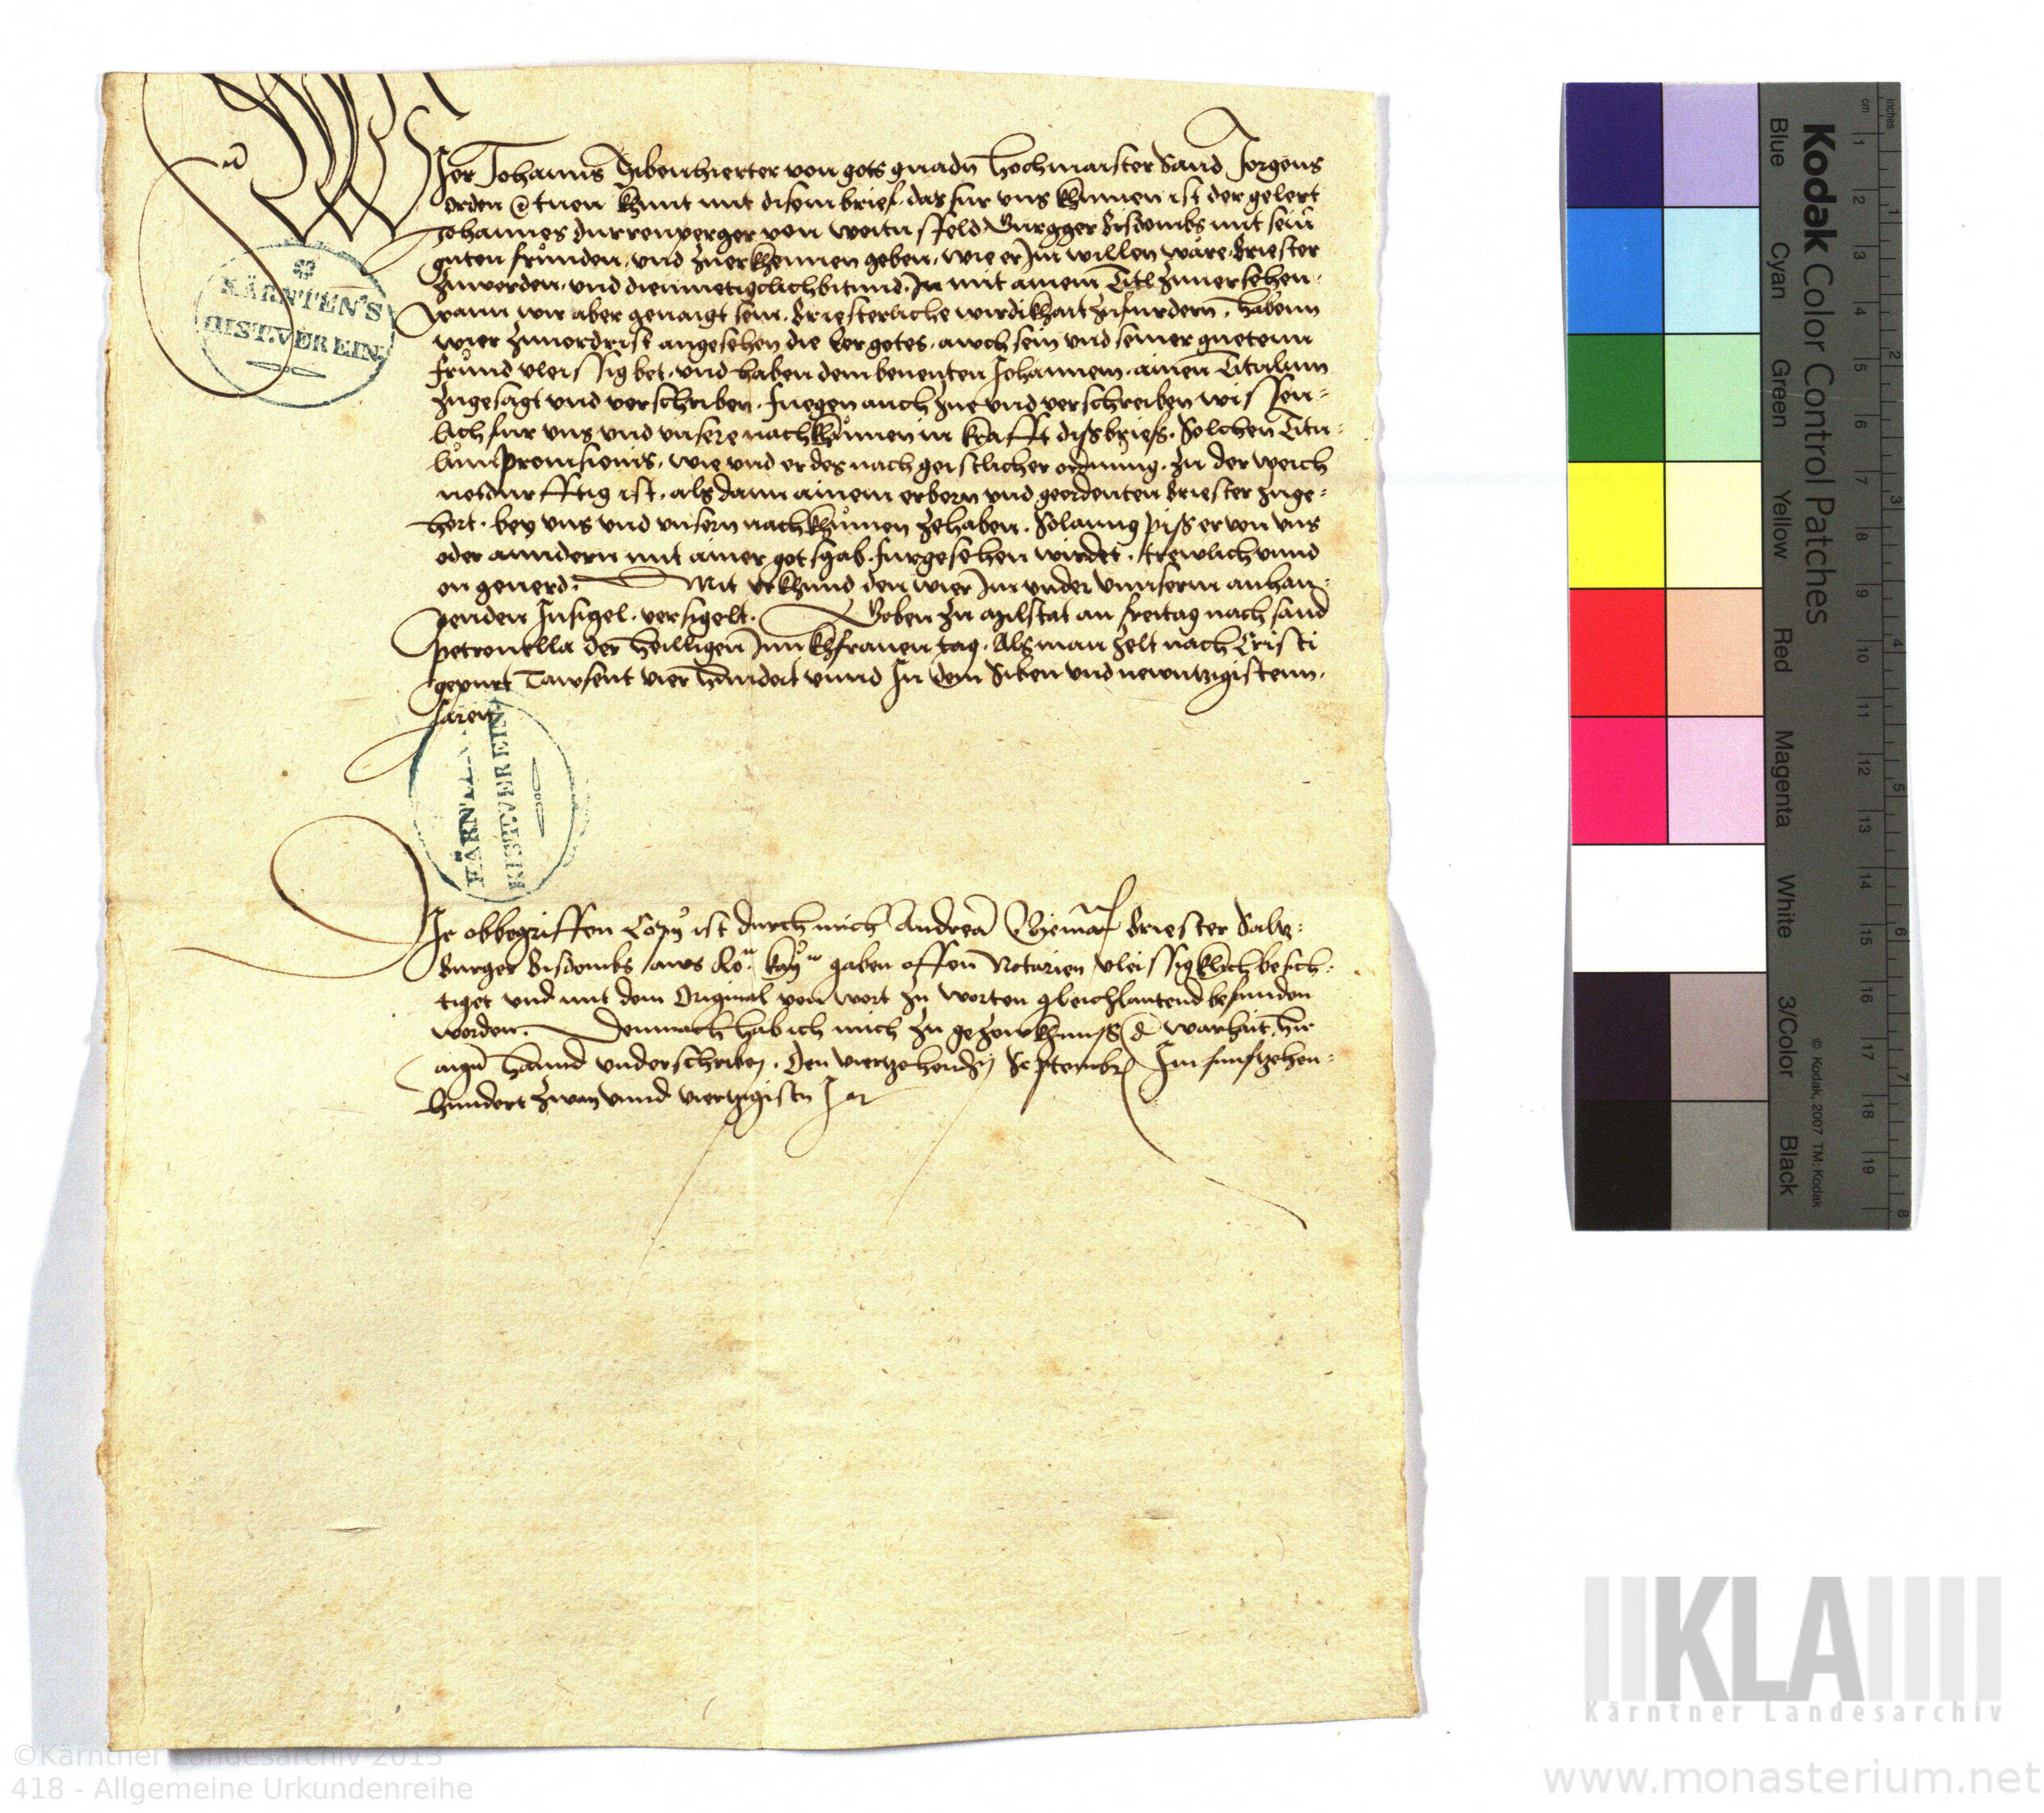 Wier Johanns Sibenhierter von gots gnadn Hochmaister Sand Jorgens
orden &c tuen khunt mit disem brief. das fur vns khumen ist der gelert
Johannes Durrenperger von weitnsfeld Gurgger Bisdombs mit sein
guten frunden. vnd zuerkhennen geben. wie er im willen wäre. Briester
zuwerden. vnd diemuetigclich bitund. In mit ainem Titl zuuersehen.
wann wir aber genaigt sein. Briesterliche wirdikhait zufurdern. habenn
wier zuuordrist angesehen die Eer gotes. auch sein vnd seiner guetenn
frund vleissig bet. vnd haben dem benenten Johannem. ainen Titulum
zugesagt vnd verschriben. Fuegen auch zue vnd verschreiben wissen=
lich fur vns vnd vnsere nachkhumen in krafft diss briefs. Solchen Titu=
lum prouisionis. wie vnd er des nach geistlicher ordnung. zu der weich
notdurfftig ist. als dann ainem erbern vnd geordenten Briester zuge=
hört. bey vns vnd vnsern nachkhumen zehaben. Solanng piss er von vns
oder anndern mit ainer gotsgab. furgesehen wirdet. trewlich vnnd
on geuerd. Mit vrkhund den wier im vnder vnnserm anhan=
genden Insigel. versigelt. Geben zu Milstat an freitag nach sand
petronella der heilligen Junnkhfrauen tag. Als man zelt nach Cristi
gepurt Tawsent vier hundert vnnd In dem Siben vnd newntzigistenn.
Jaren
Die obbegriffen Copy ist durch mich Andrea Briester Saltz=
burger Bisdombs aus Ro. kay. gaben offen Notarien vleissigklich besich=
tiget vnd mit dem Original von wort zu worten gleichlautend befunden
worden. Demnach hab ich mich zu gezewkhnuss d warhait hie
aigner hannd vnderschriben. Den viertzehendn Septembr Im funfftzehen=
hundert zway vnnd viertzigistn Jar
KÄRNTEN'S
HIST.VEREIN.
KÄRNTEN'S
HIST.VEREIN
Kodak Color Control Patches
Blue
Cyan
Green
Yellow
Red
Magenta
White
3/Color
Black
© Kodak, 2007 TM: Kodak
cm
1 2 3 4 5 6 7 8 9 10 11 12 13 14 15 16 17 18 19
inches
1 2 3 4 5 6 7 8
KLA
Kärntner Landesarchiv
©Kärntner Landesarchiv 2013
418 - Allgemeine Urkundenreihe
www.monasterium.net